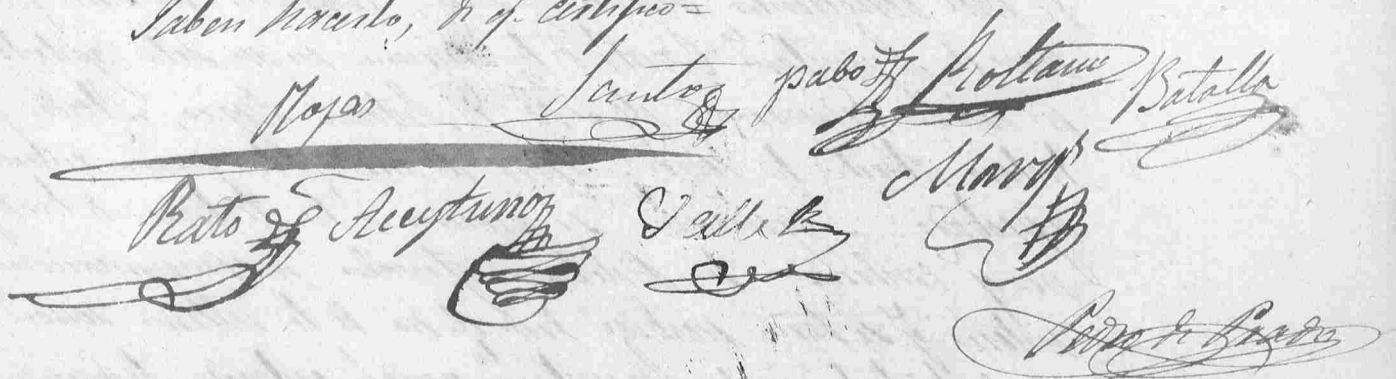 Saben hacerlo, de q.e certifico=
Rojas Santos pabo Roltane Batalla
Rato Aceytuno Valle Marq.s
Pedro de Prado